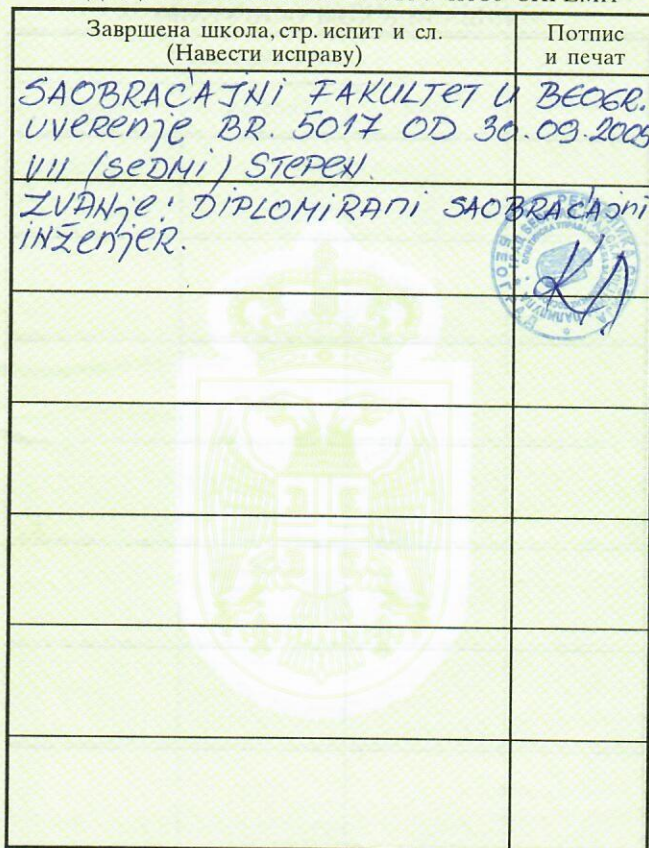 Завршена школа, стр. испит и сл.
(Навести исправу)
Потпис
и печат
SAOBRAĆAJNI FAKULTET U BEOGR.
UVERENJE BR. 5017 OD 30.09.2005
VII (SEDMI) STEPEN.
ZVANJE: DIPLOMIRANI SAOBRAĆAJNI
INŽENJER.